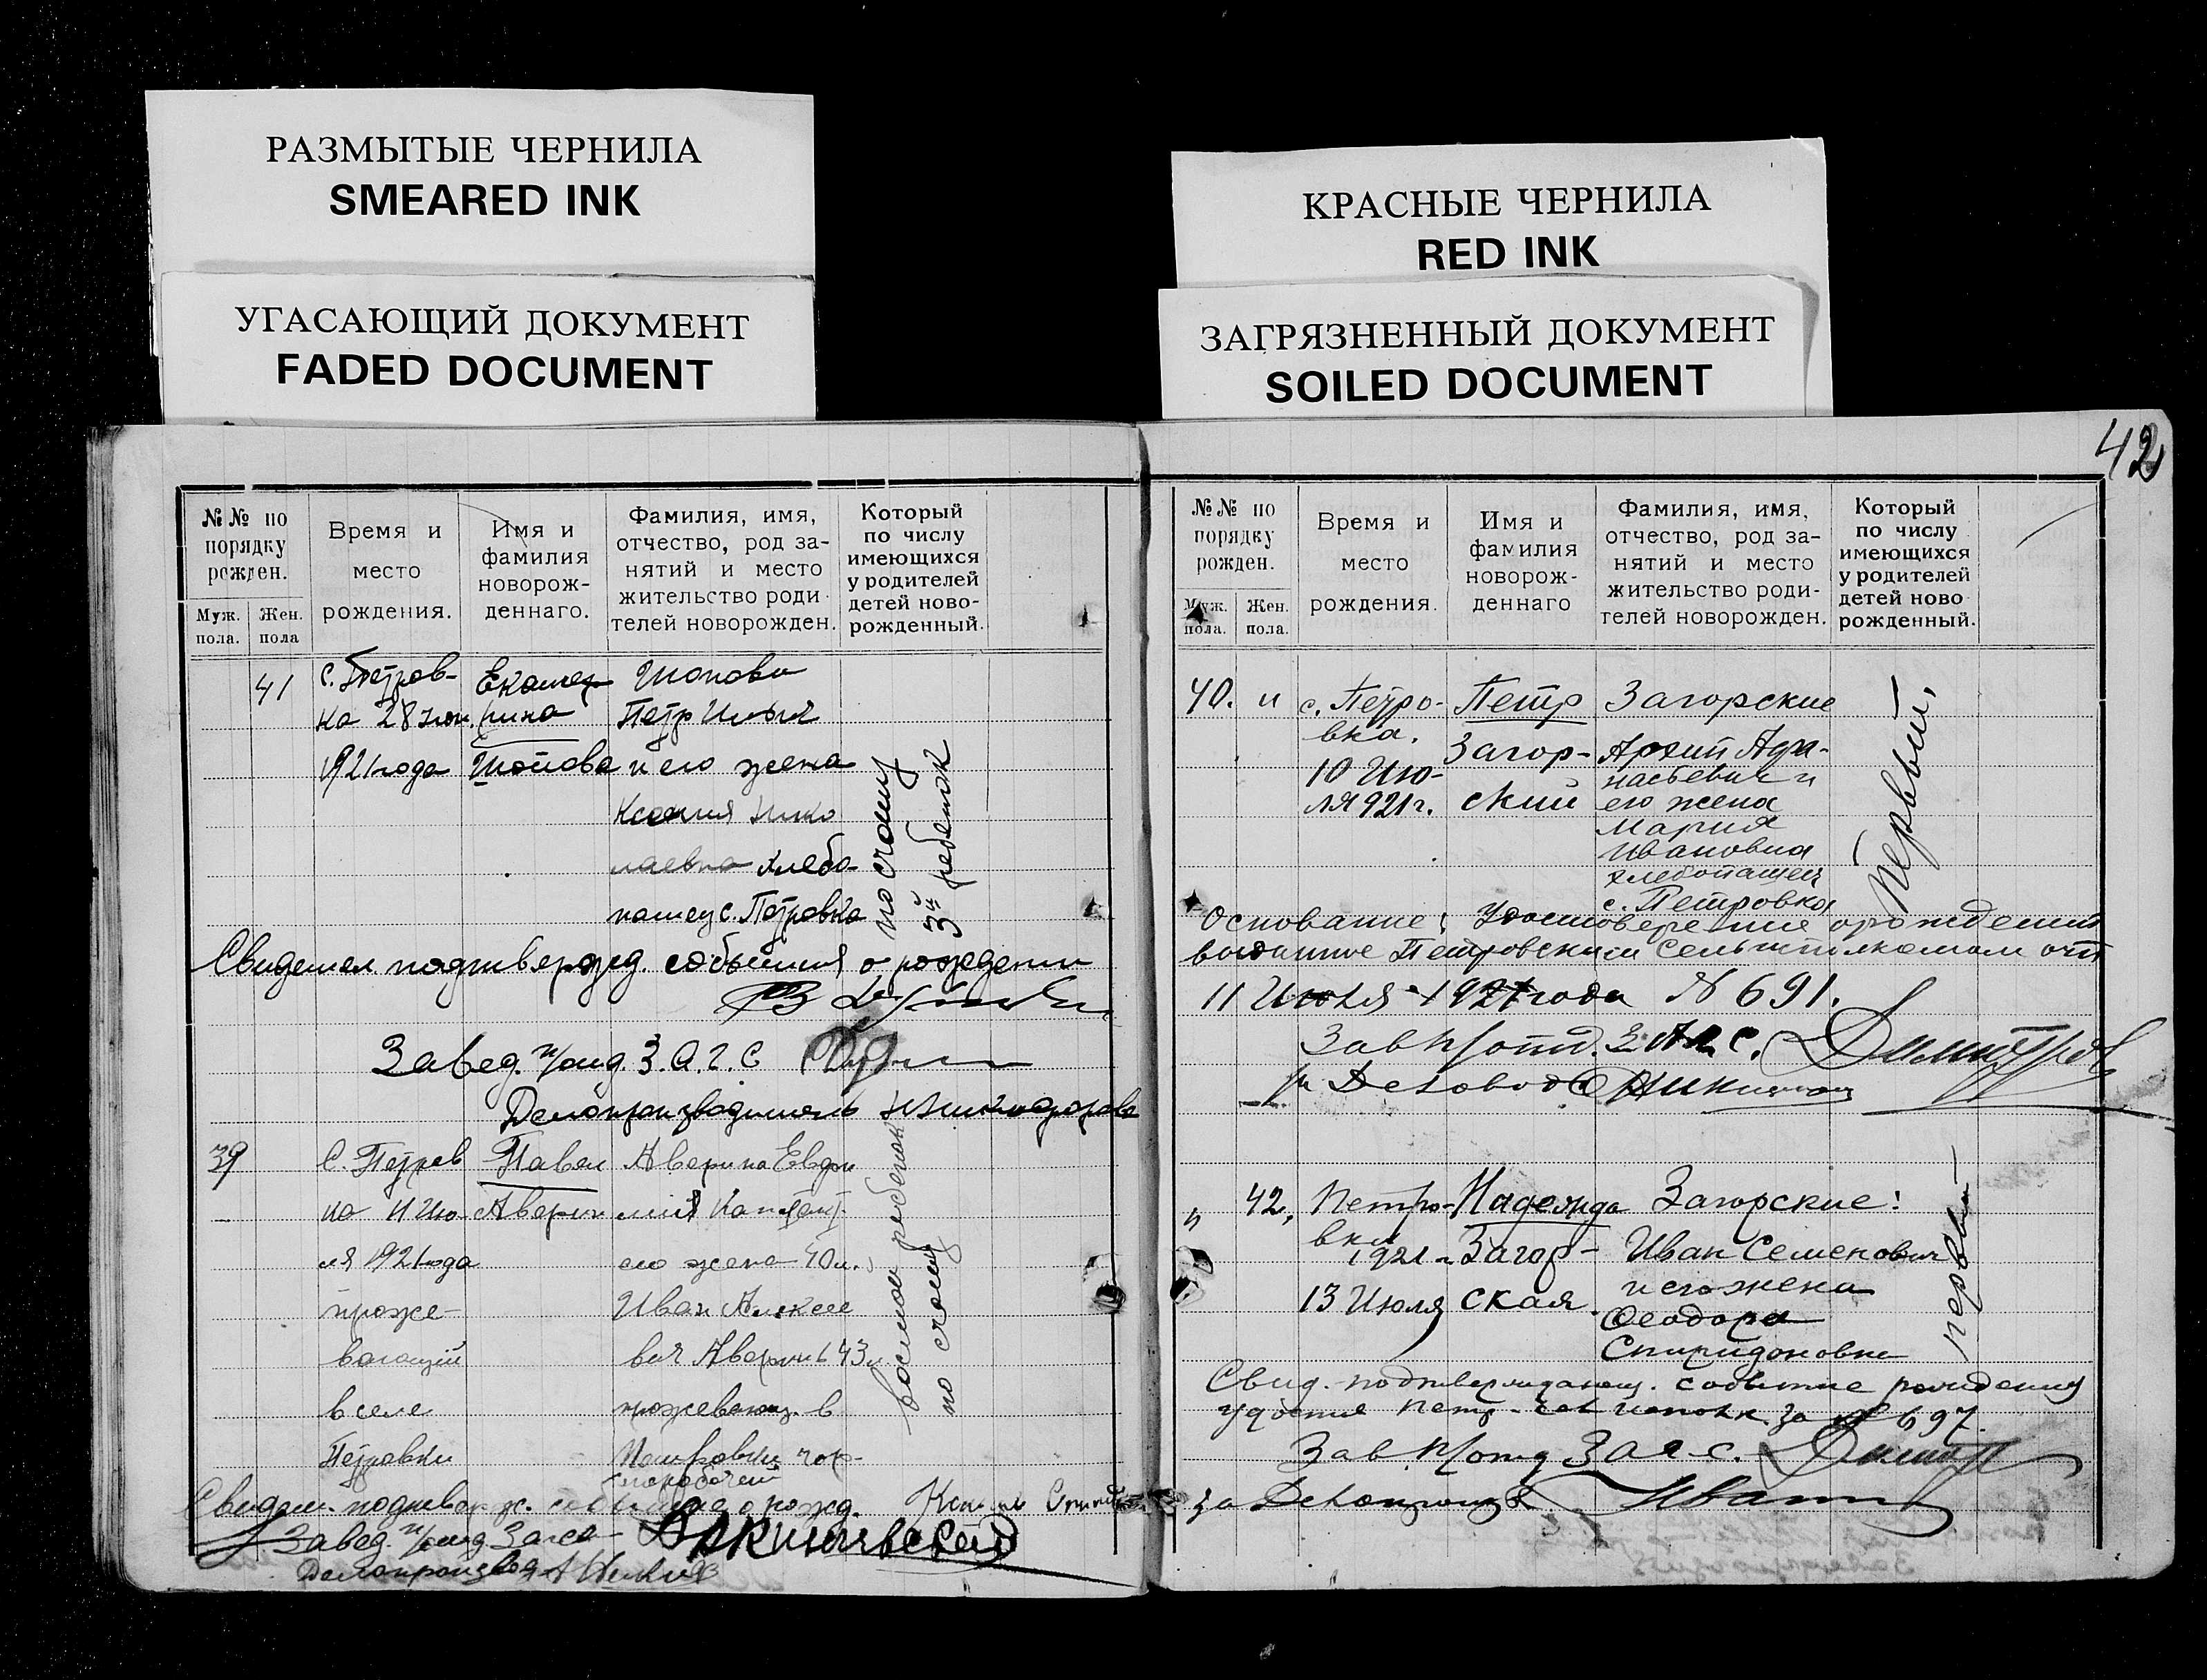 РАЗМЫТЫЕ ЧЕРНИЛА
SMEARED INK
УГАСАЮЩИЙ ДОКУМЕНТ
FADED DOCUMENT
КРАСНЫЕ ЧЕРНИЛА
RED INK
ЗАГРЯЗНЕННЫЙ ДОКУМЕНТ
SOILED DOCUMENT
№№ по
порядку
рожден.
Муж.
пола.
Жен.
пола
Время и
место
рождения.
Имя и
фамилия
новорож-
деннаго.
Фамилия, имя,
отчество, род за-
нятий и место
жительство роди-
телей новорожден.
Который
по числу
имеющихся
у родителей
детей ново-
рожденный.
41
с. Петров-
ка 28
1921 года
Екатер
ина
Шопова
Петр Ильич
и его жена
Ксения Нико
лаевна хлебо-
пашец с. Петровка
по счету
3й ребенок
Свидетел подтвержд. события о рождении
Завед. п/отд. З.А.Г.С
Делопроизводитель
39
С. Петров
ка 11 Ию-
ля 1921 года
проже-
вающий
в селе
Петровки
Павел
Аверин
Аверина Евдо
его жена 40 л.
Иван Алексее
вич Аверин 43 л
прожевающ. в
Петровки
восьмой ребенок
по счету
Свидет. подтвержд. событие о рожд.
Завед. п/отд. Загса
Делопроизвод
42
№№ по
порядку
рожден.
Муж.
пола.
Жен.
пола.
Время и
место
рождения.
Имя и
фамилия
новорож-
деннаго
Фамилия, имя,
отчество, род за-
нятий и место
жительство роди-
телей новорожден.
Который
по числу
имеющихся
у родителей
детей ново
рожденный.
40. "
с. Петро-
вка.
10 Ию-
ля 921 г.
Петр
Загор-
ский
Загорские
Архип Афа-
насьевич и
его жена
Мария
Ивановна
хлебопашец
с. Петровка
Первый.
Основание: Удостоверение о рождении
выданное Петровским Сельисполкомом от
11 Июля 1921 года № 691.
Зав П/отд. ЗАГС.
42,
Петро-
вки
1921 г.
13 Июля
Надежда
Загор-
ская.
Загорские:
Иван Семенович
и его жена
Феодора
Спиридоновна
первый
Свид. подтверждающ. событие рождения
Петр. за № 697.
Зав. П/отд ЗАГС.
за Делопроизв